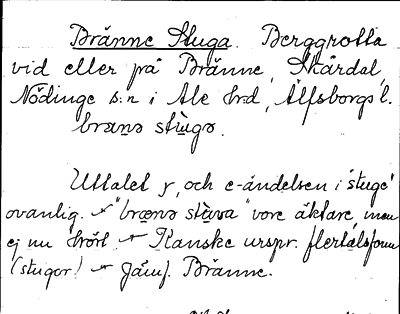 Bränne Stuga. Berggrotta
vid eller på Bränne, Skårdal,
Nödinge s:n i Ale hrd, Älfsborgs l.
brænə stùgə.
Uttalet g, och e-ändelsen i 'stuge'
ovanlig. "brænə stùva" vore äktare, men
ej nu hört. Kanske urspr. flertalsform
(stugor). Jämf. Bränne.